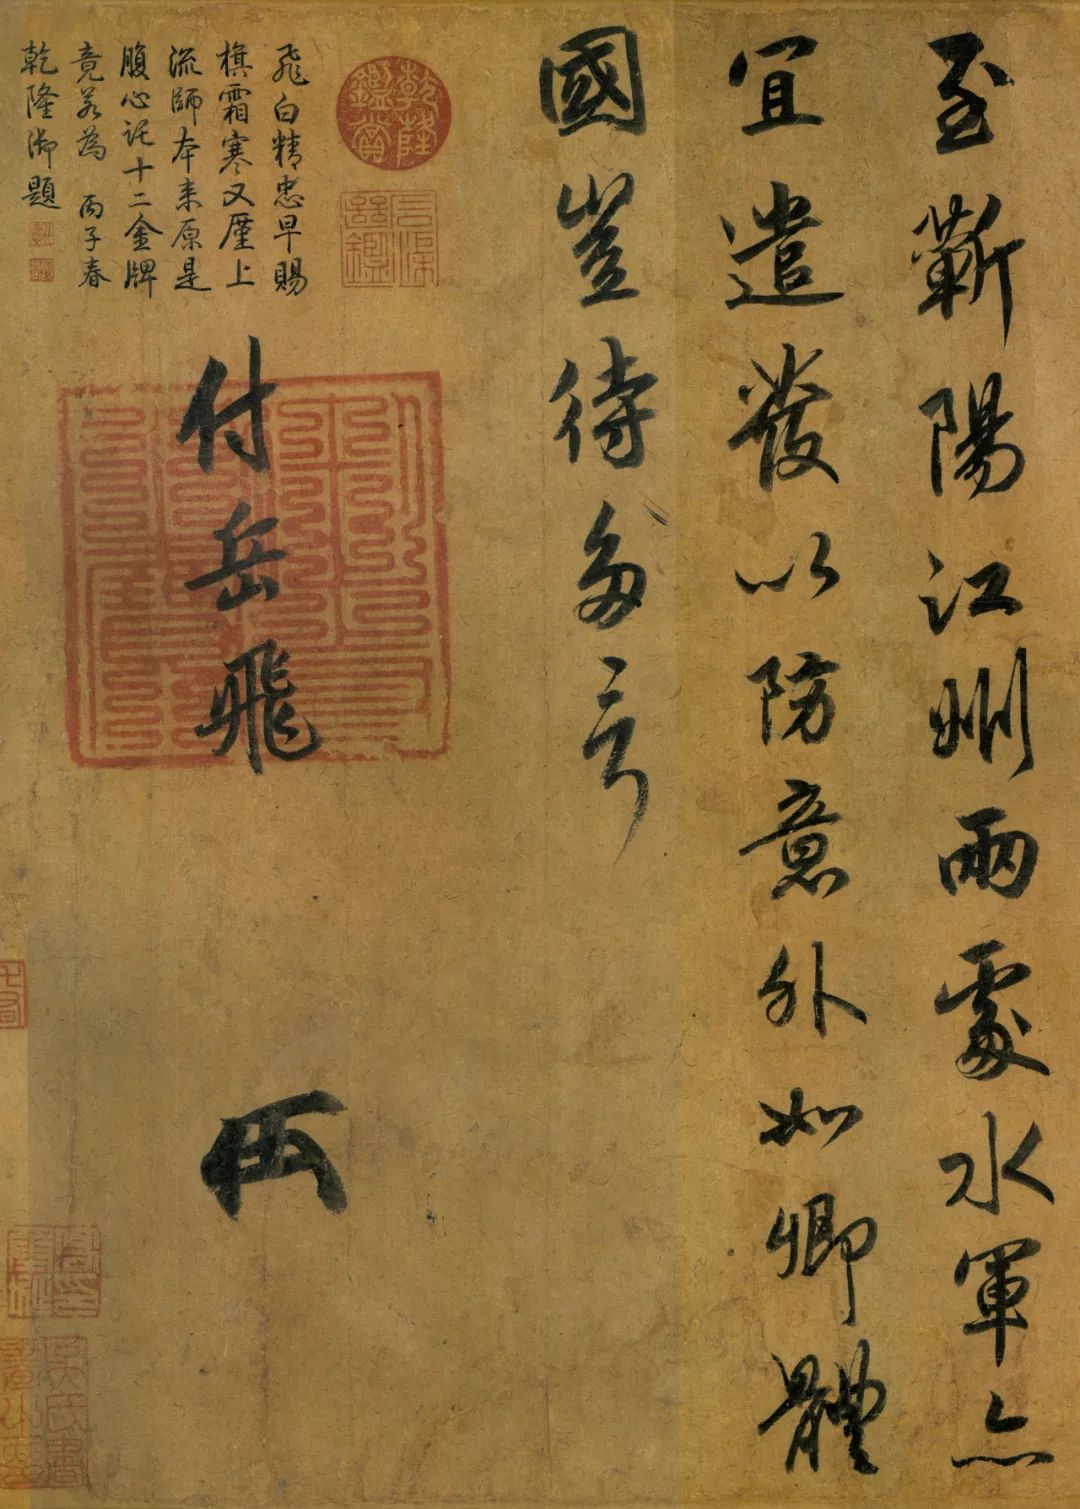 至蘄陽江州兩處水軍亦
宜遣發以防意外如卿體
國豈待多言
付岳飛
乾隆鑑賞
飛白精忠早賜
旗霜寒又歷上
流師本來原是
腹心託十二金牌
竟若為 丙子春
乾隆御題